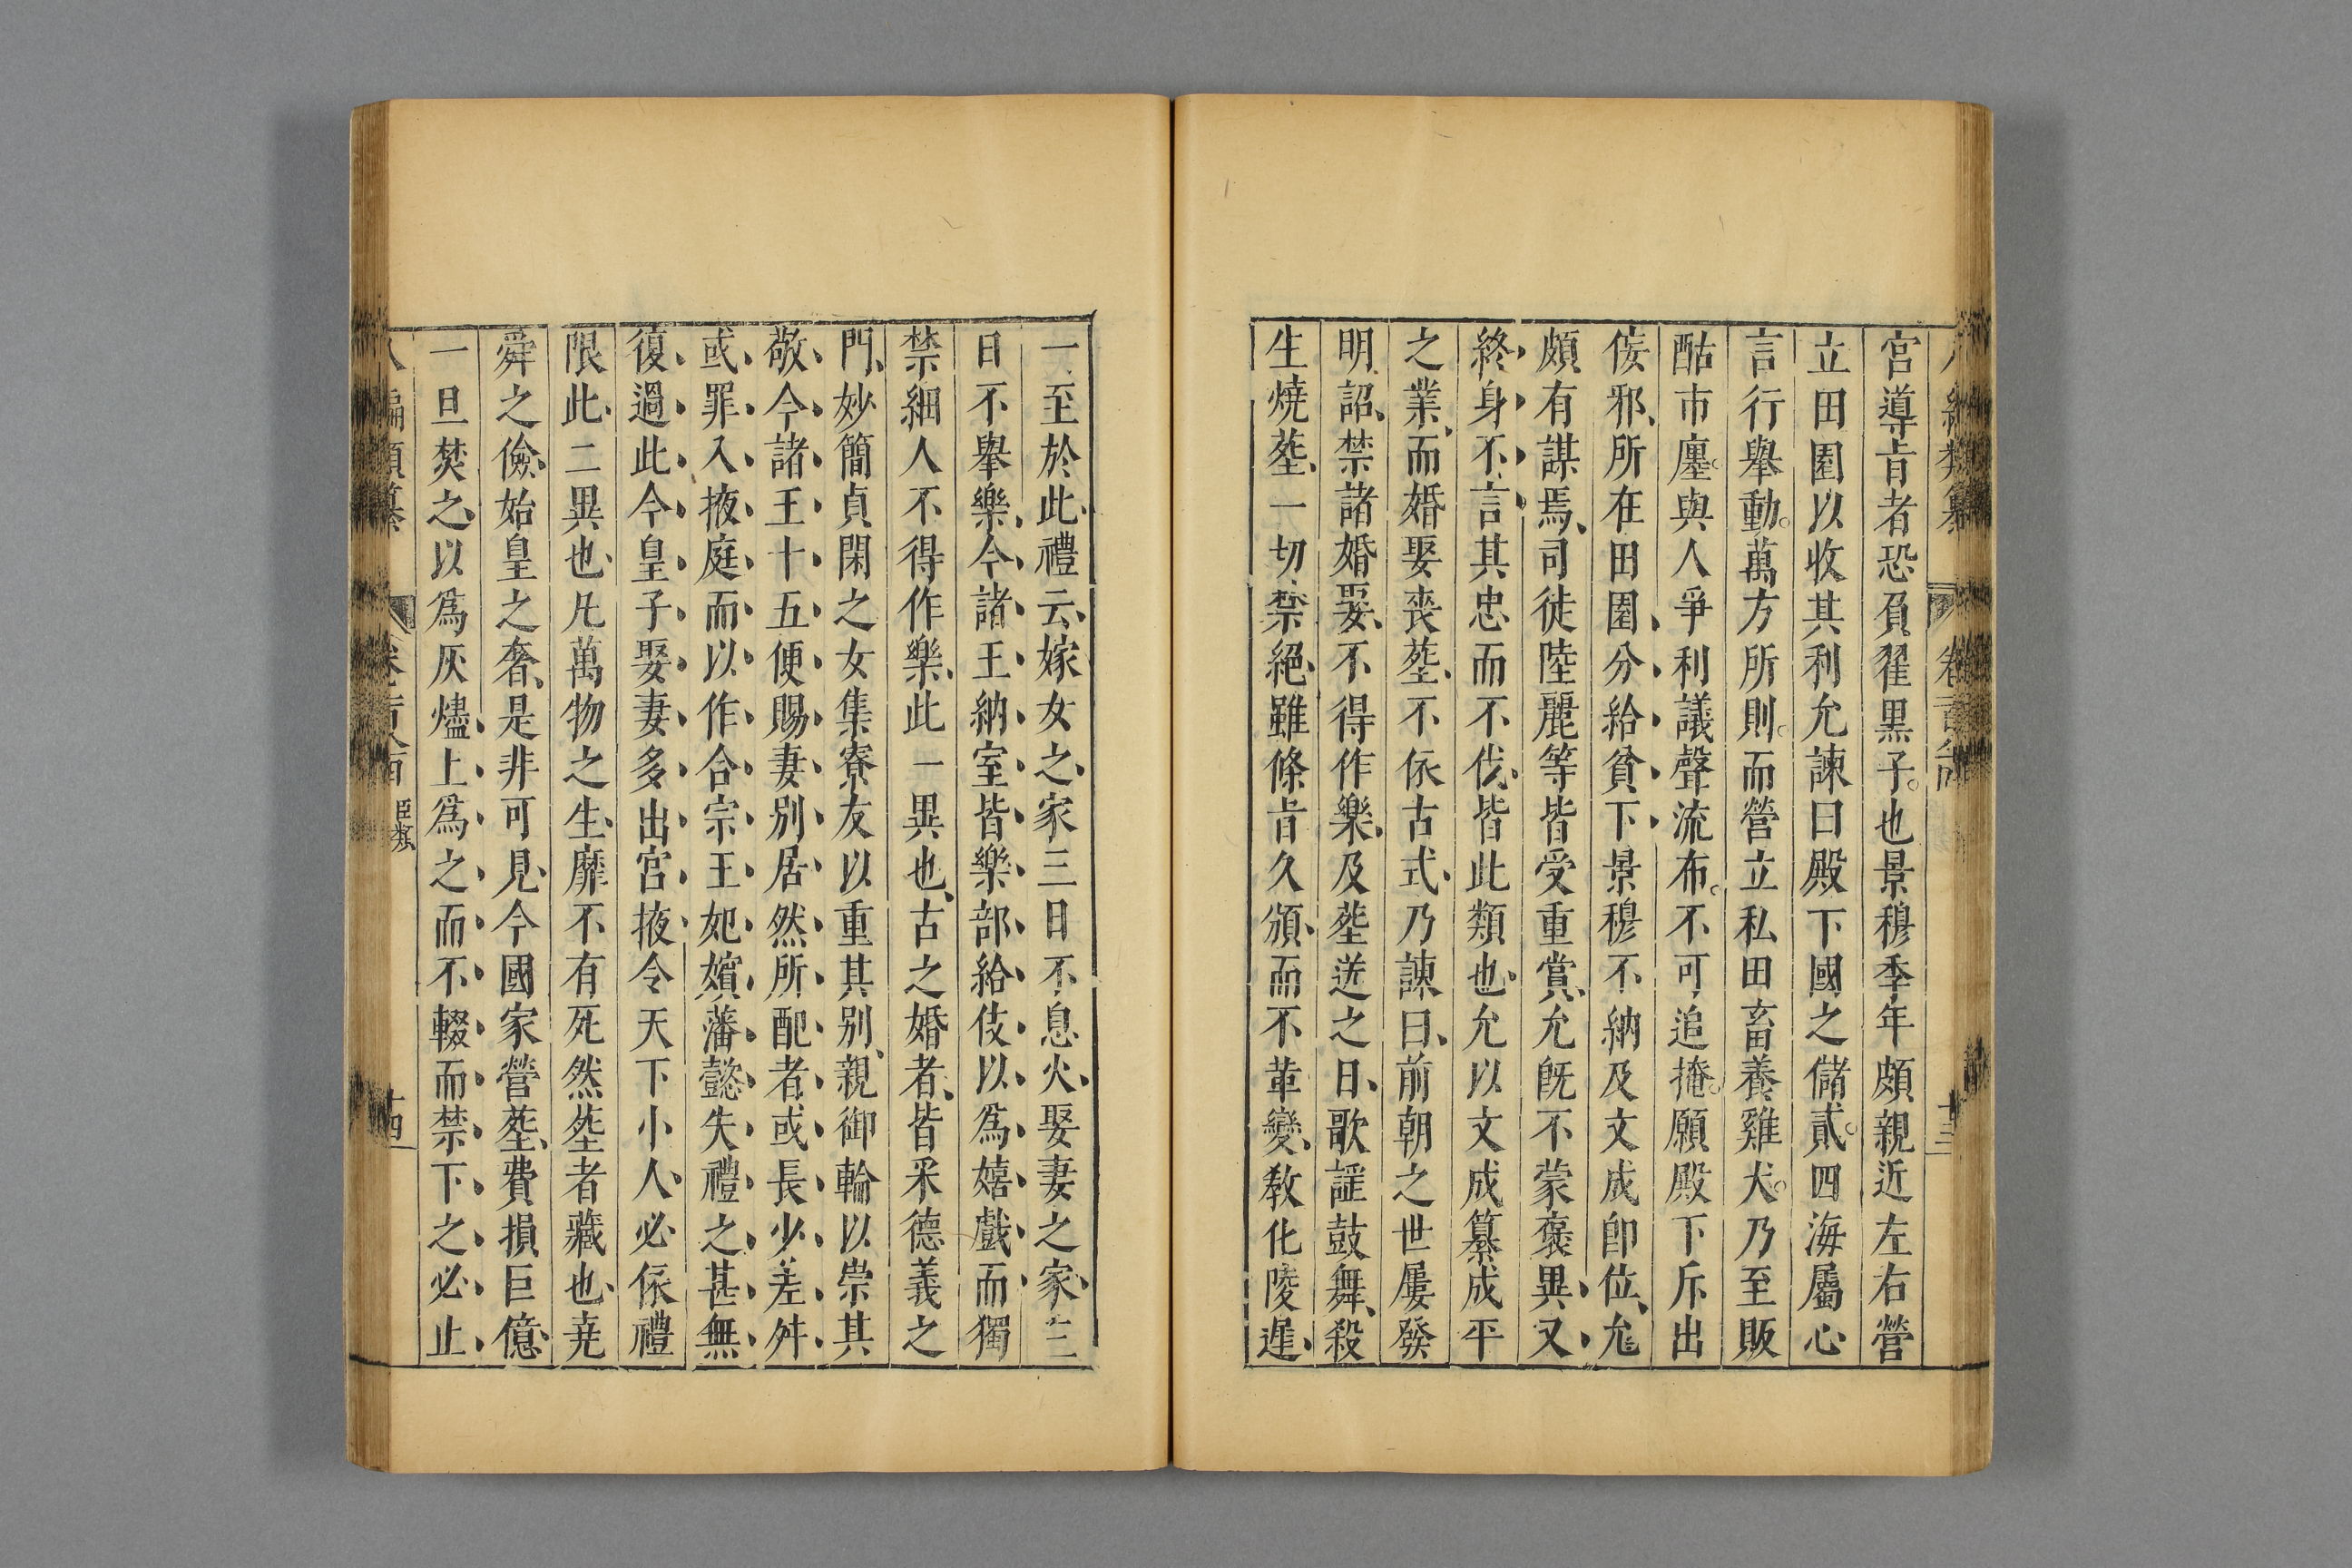 宮導旨者恐負翟黒子。也景穆季年頗親近左右營
立田園以收其利允諫曰殿下國之儲貳。四海屬心
言行舉動。萬方所則。而營立私田畜養雞犬。乃至販
酤市廛。與人爭利議聲流布。不可追掩。願殿下斥出
侫邪、所在田園、分給貧下、景穆不納及文成卽位、允
頗有謀焉、司徒陸麗等皆受重賞、允旣不蒙褒異、又
終身不言其忠而不伐、皆此類也、允以文成纂成平
之業、而婚娶喪塟、不依古式、乃諫曰、前朝之世屢發
明詔、禁諸婚娶、不得作樂、及塟送之日、歌謡鼓舞、殺
生燒塟、一切禁絕、雖條旨久頒、而不革變、敎化陵遲、
一至於此、禮云、嫁女之家三日不息火、娶妻之家、三
日不舉樂、今諸王納室皆樂部給伎以爲嬉戲、而獨
禁細人不得作樂、此一異也、古之婚者、皆釆德義之
門、妙簡貞閑之女集寮友以重其别、親御輪以崇其
敬、今諸王十五便賜妻别居、然所配者、或長少差舛
或罪入掖庭、而以作合宗王、妃嬪藩懿、失禮之甚、無
復過此、今皇子娶妻、多出宮掖、令天下小人、必依禮
限、此二異也、凡萬物之生、靡不有死、然塟者藏也、堯
舜之儉、始皇之奢、是非可見、今國家營塟、費損巨億、
一旦焚之、以爲灰燼、上爲之而不輟而禁下之必止、
八編類纂 臣類 十四